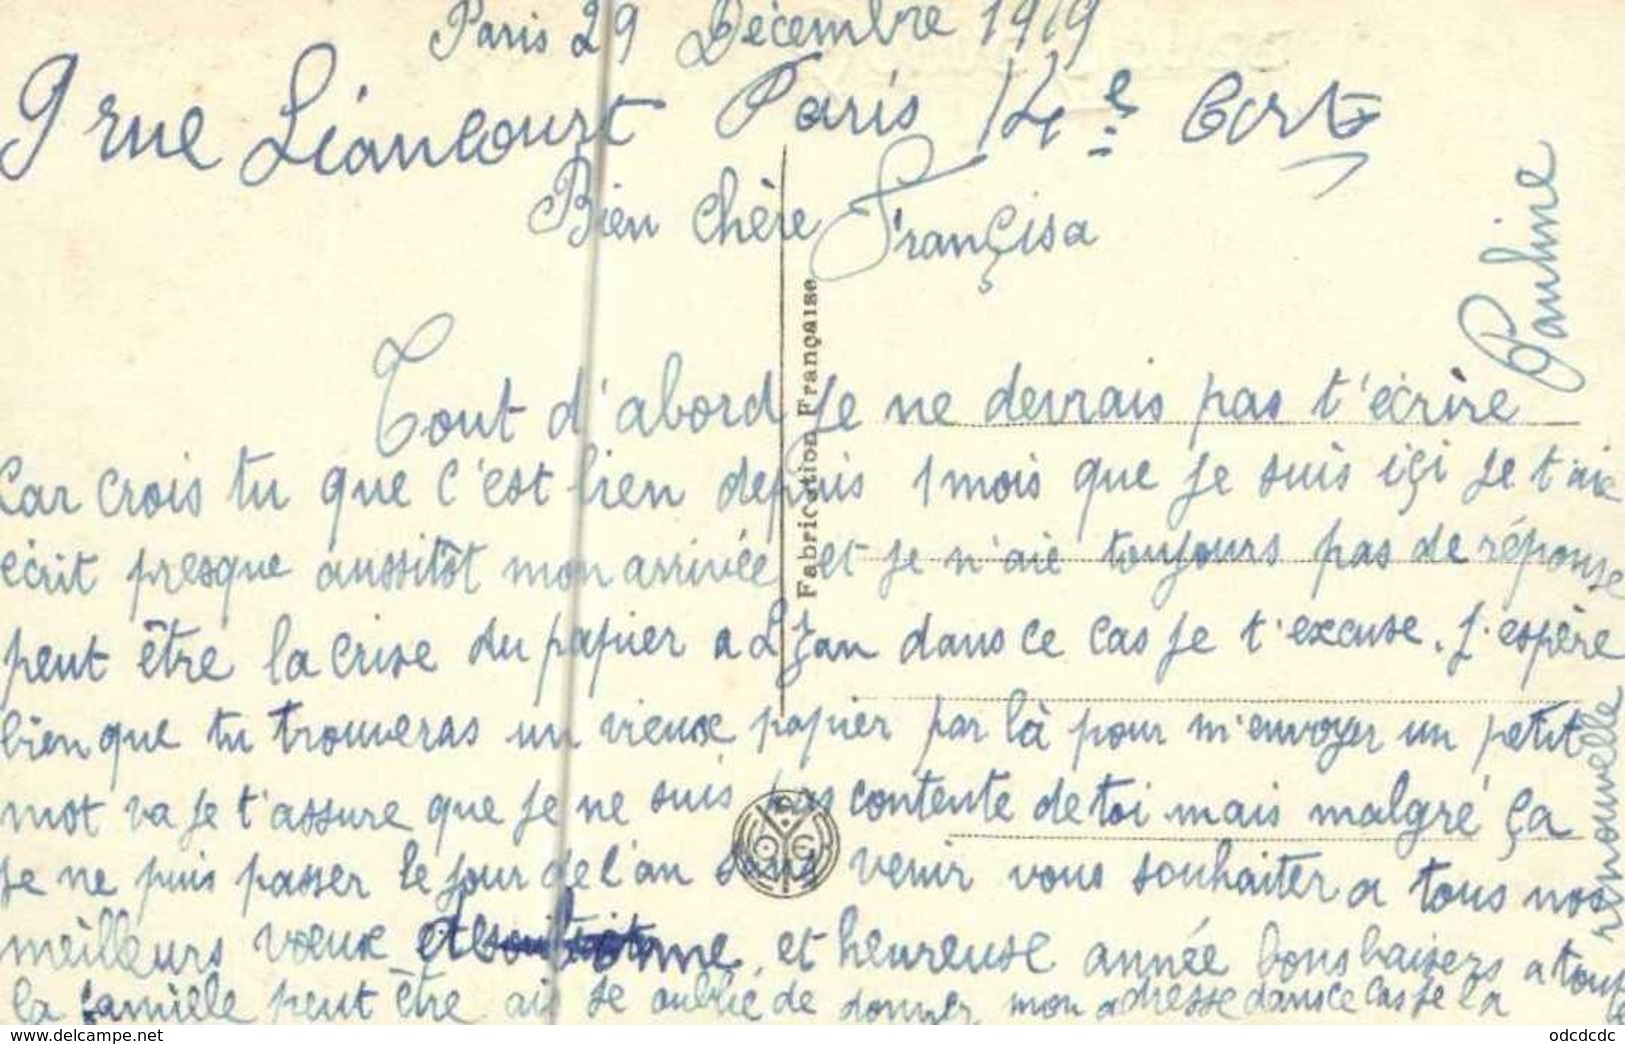 Paris 29 Décembre 1919
9 rue Liancourt Paris 14e
Bien chère Françisa
Tout d'abord je ne devrais pas t'écrire
Car crois tu que c'est bien depuis 1 mois que je suis içi je t'aie
écrit presque aussitôt mon arrivée et je n'aie toujours pas de réponse
peut être la crise du papier a dans ce cas je t'excuse. J'espère
bien que tu trouveras un vieux papier par là pour m'envoyer un petit
mot va je t'assure que je ne suis pas contente de toi mais malgré ça
je ne puis passer le jour de l'an sans venir vous souhaiter a tous nos
meilleurs vœux et bonne et heureuse année bons baisers a toute
la famille peut être ai je oublié de donner mon adresse dans ce cas je la
renouvelle
Pauline
Fabrication Française
www.delcampe.net
odcdcdc